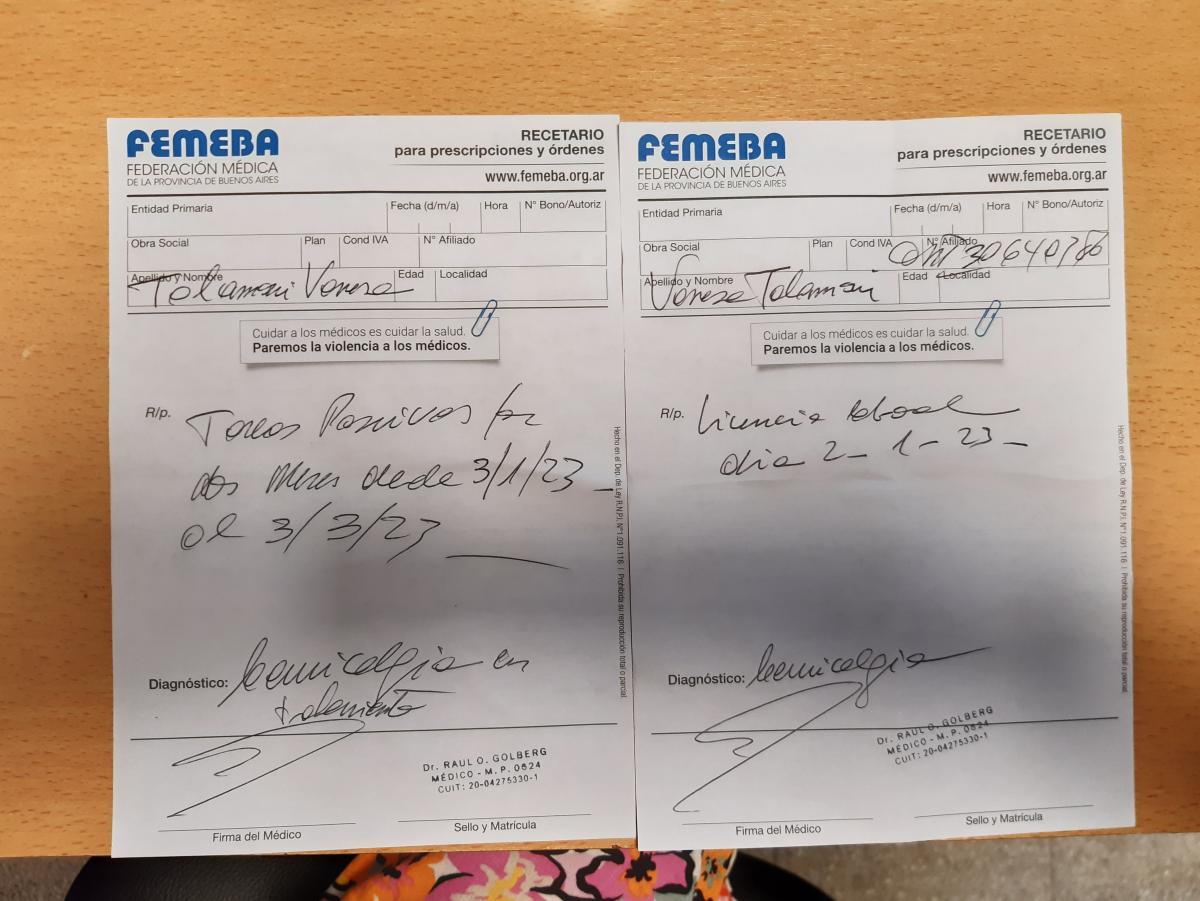 FEMEBA
FEDERACIÓN MÉDICA
DE LA PROVINCIA DE BUENOS AIRES
RECETARIO
para prescripciones y órdenes
www.femeba.org.ar
Entidad Primaria
Fecha (d/m/a)
Hora
N° Bono/Autoriz
Obra Social
Plan
Cond IVA
N° Afiliado
Apellido y Nombre
Edad
Localidad
Vanesa
Cuidar a los médicos es cuidar la salud.
Paremos la violencia a los médicos.
R/p.
Tareas Pasivas por
dos Meses desde 3/1/23
al 3/3/23
Diagnóstico: Cervicalgia en
tratamiento
Dr. RAUL O. GOLBERG
MÉDICO - M.P. 0524
CUIT: 20-04275330-1
Firma del Médico
Sello y Matrícula
Hecho en el Dep. de Ley R.N.P.I. N° 1.091.116 | Prohibida su reproducción total o parcial.
FEMEBA
FEDERACIÓN MÉDICA
DE LA PROVINCIA DE BUENOS AIRES
RECETARIO
para prescripciones y órdenes
www.femeba.org.ar
Entidad Primaria
Fecha (d/m/a)
Hora
N° Bono/Autoriz
Obra Social
Plan
Cond IVA
N° Afiliado
Apellido y Nombre
Edad
Localidad
Vanesa
Cuidar a los médicos es cuidar la salud.
Paremos la violencia a los médicos.
R/p.
Licencia laboral
dia 2-1-23
Diagnóstico: Cervicalgia
Dr. RAUL O. GOLBERG
MÉDICO - M.P. 0524
CUIT: 20-04275330-1
Firma del Médico
Sello y Matrícula
Hecho en el Dep. de Ley R.N.P.I. N° 1.091.116 | Prohibida su reproducción total o parcial.